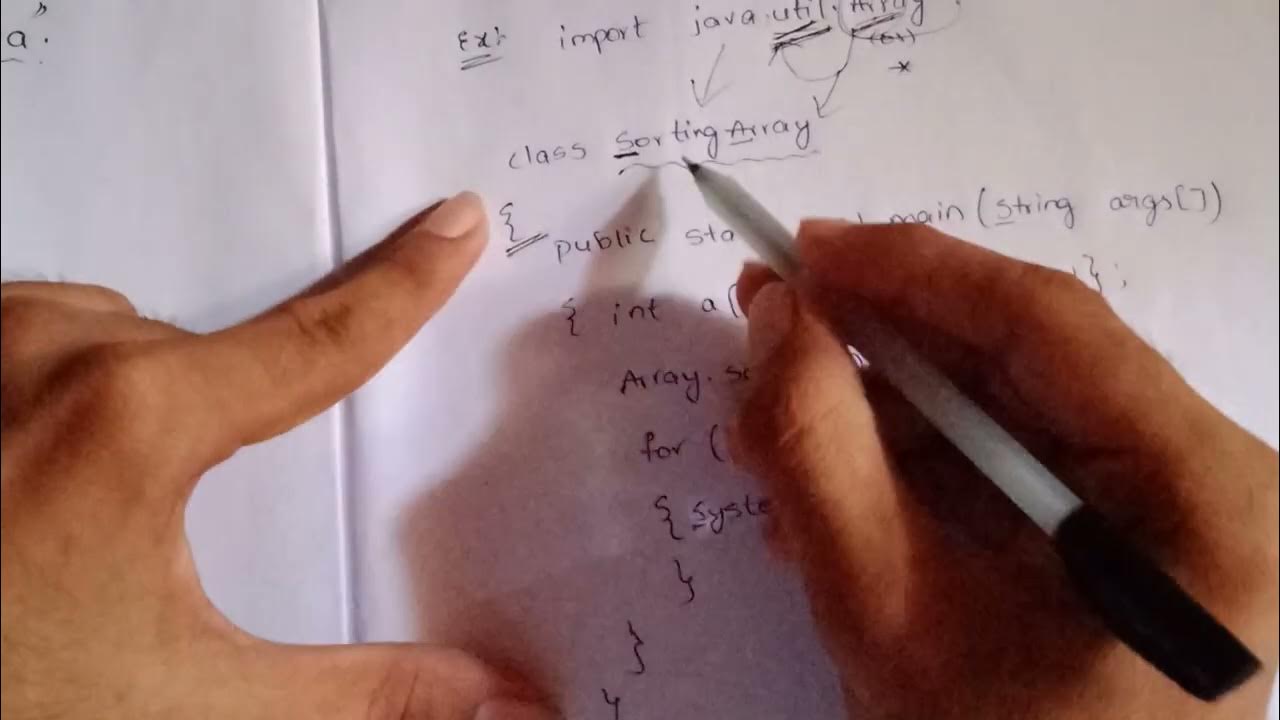 a.
Ex: import java.util.Array
(or)
*
class SortingArray
{
public main (String args[])
{ int a[ };
Array.
for (
{
}
}
}